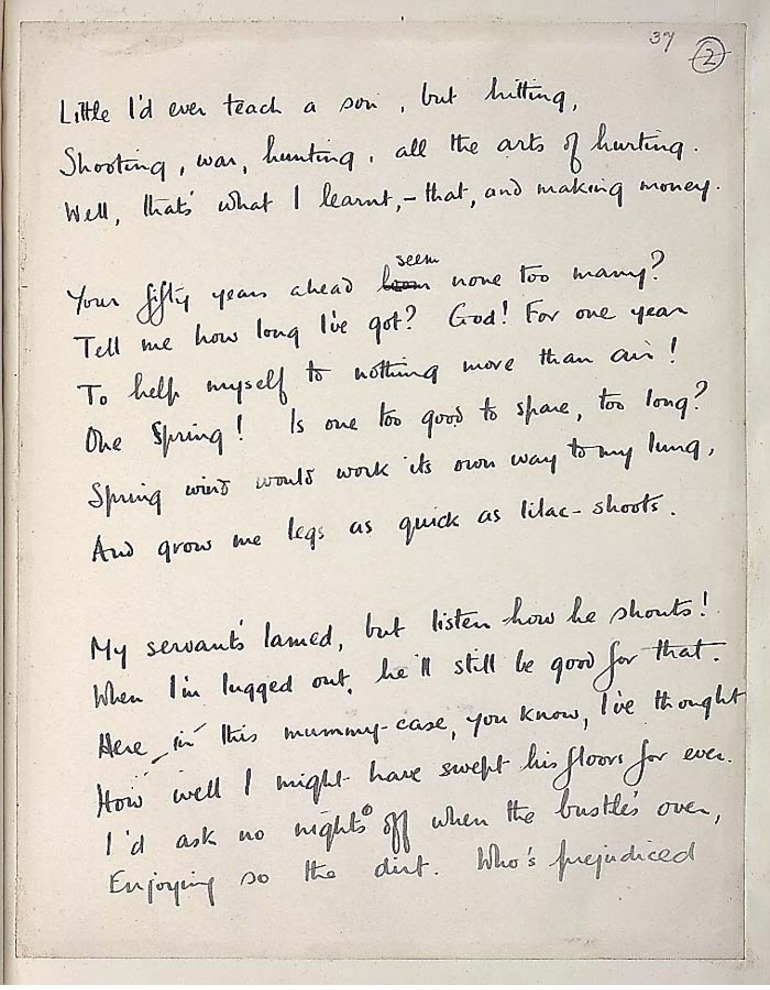 37 2
Little I'd ever teach a son, but hitting,
Shooting, war, hunting, all the arts of hurting.
Well, that's what I learnt,– that, and making money.
seem
Your fifty years ahead none too many?
Tell me how long I've got? God! For one year
To help myself to nothing more than air!
One Spring! Is one too good to spare, too long?
Spring wind would work its own way to my lung,
And grow me legs as quick as lilac-shoots.
My servant's lamed, but listen how he shouts!
When I'm lugged out, he'll still be good for that.
Here in this mummy-case, you know, I've thought
How well I might have swept his floors for ever.
I'd ask no nights off when the bustle's over,
Enjoying so the dirt. Who's prejudiced